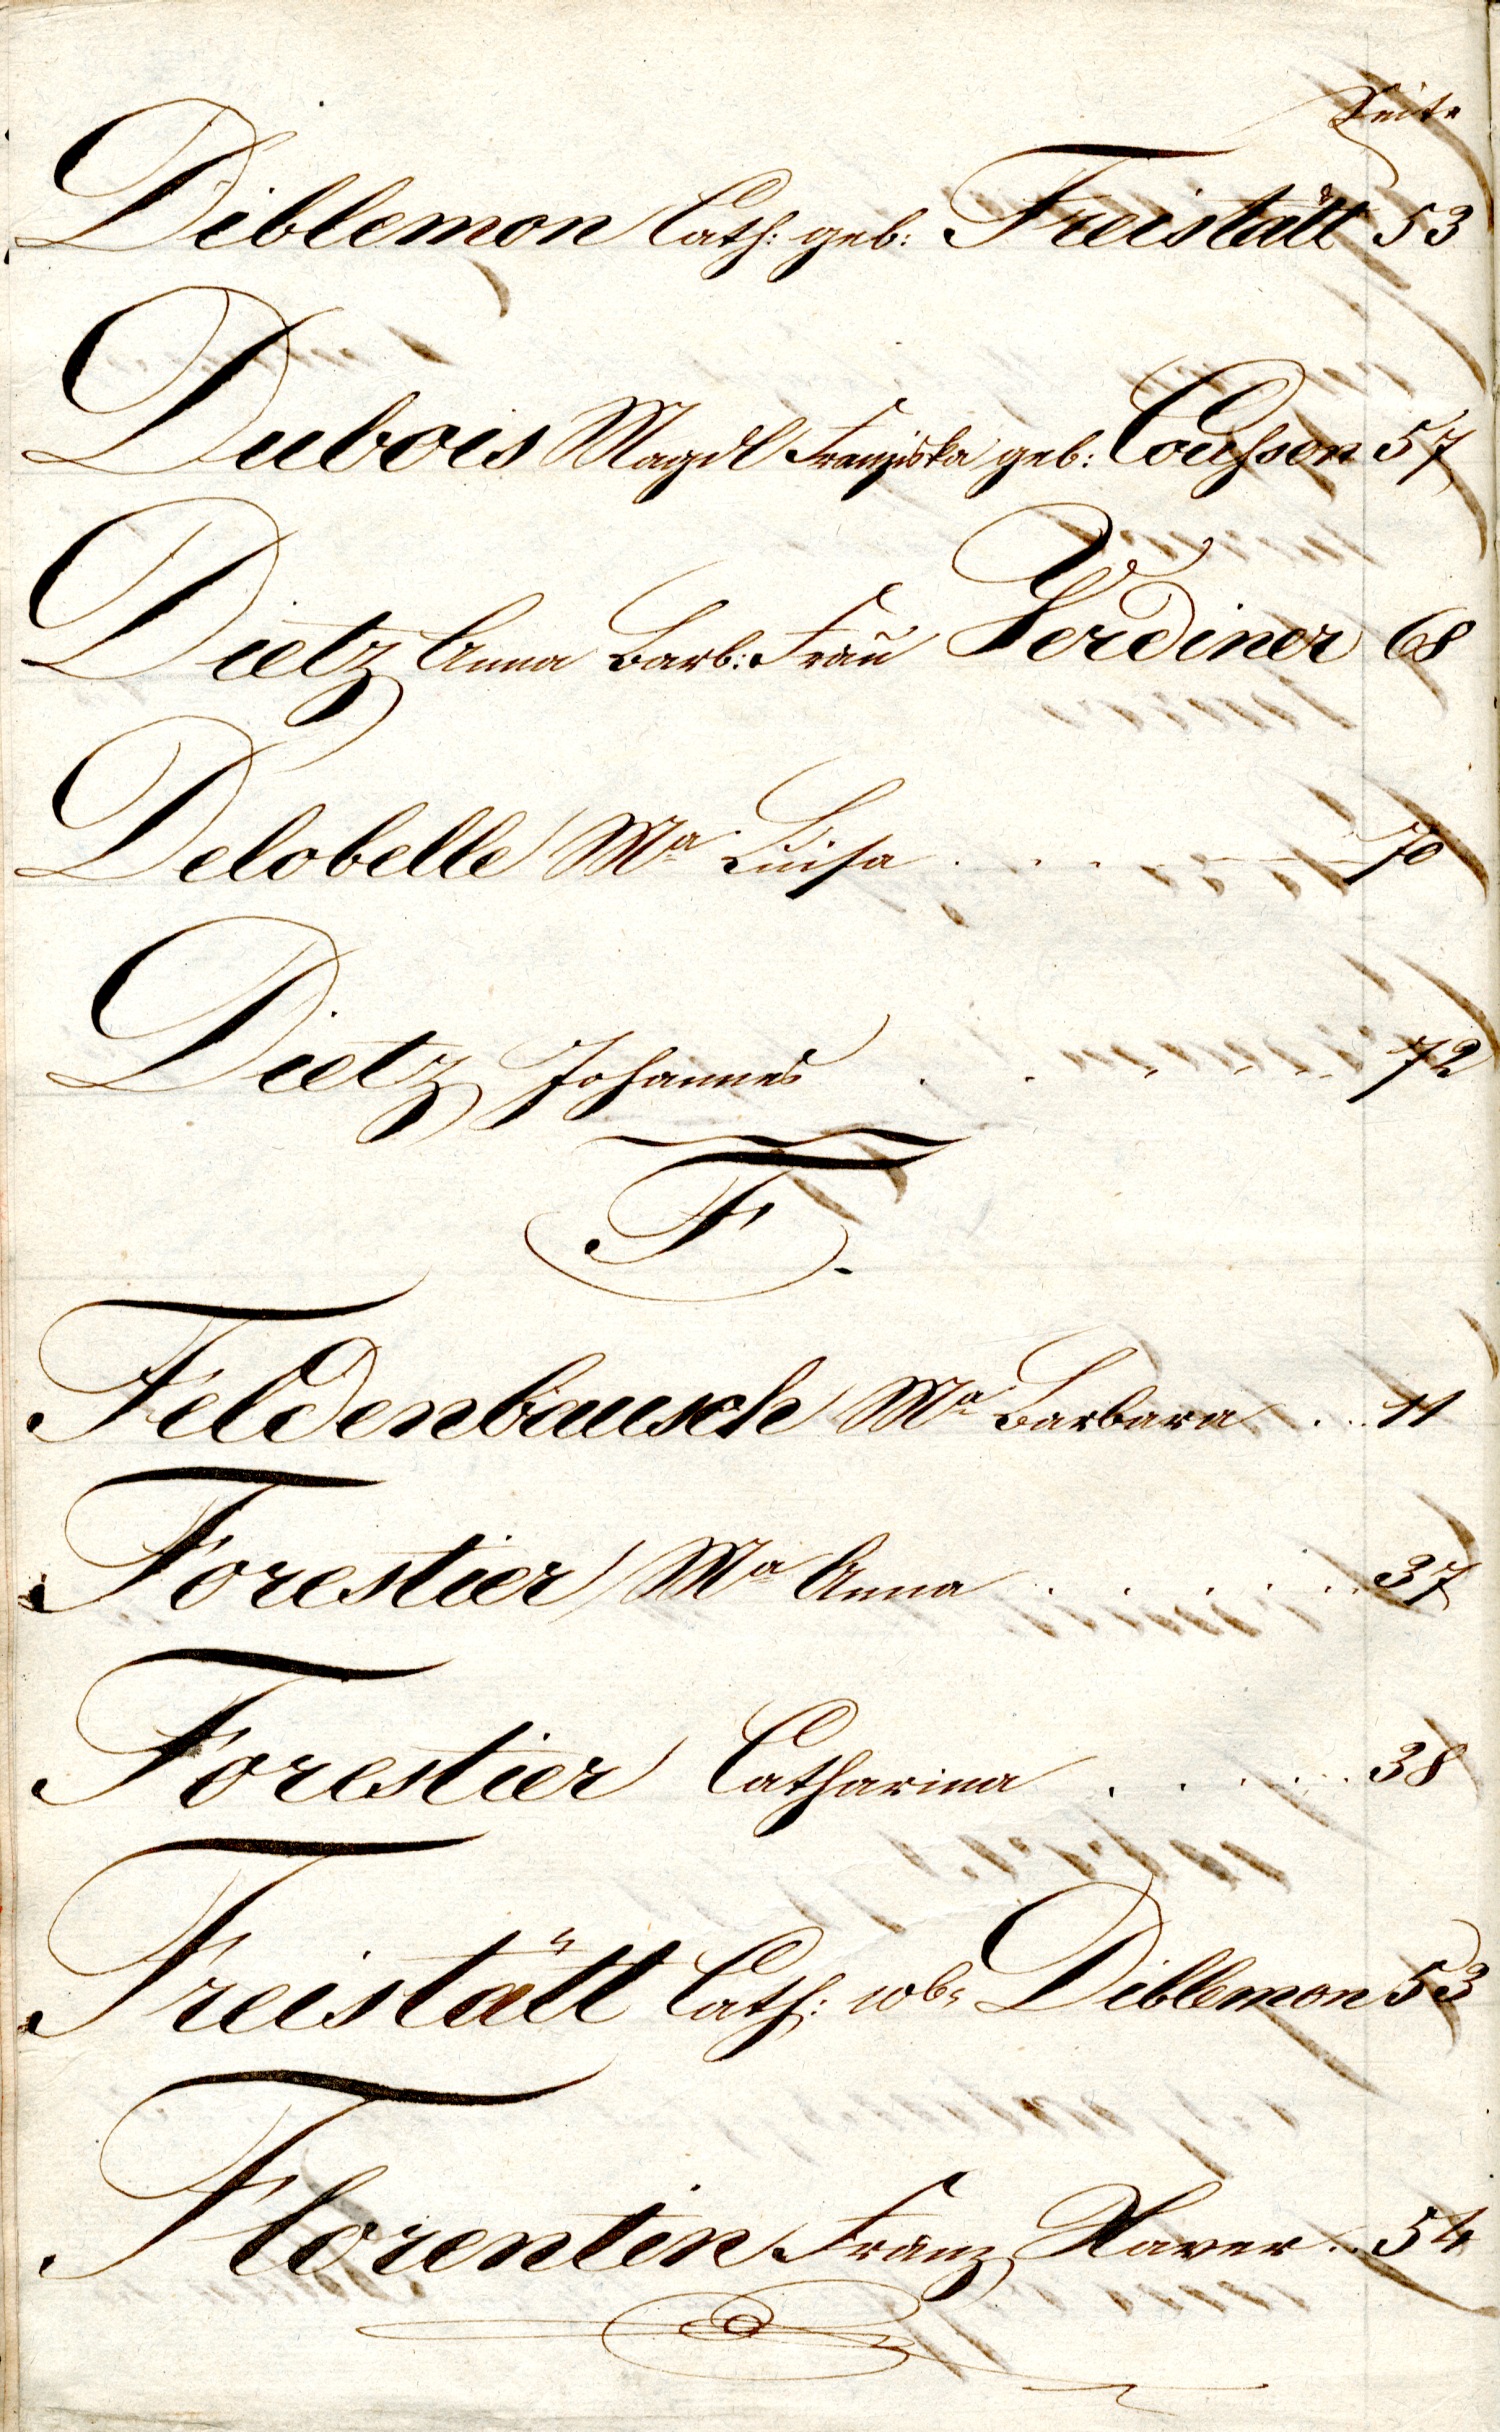 Seite
Diblemon Cath: geb: Freistätt 53
Dubois Magdl Franziska geb: Cousson 57
Dietz Anna Barb: Frau Verdiner 68
Delobelle Ma Luisa . . . . 70
Dietz Johannes . . . . 72
F.
Feldenbausch Ma Barbara . . . 11
Forestier Ma Anna . . . . . . 37
Forestier Catharina . . . . . 38
Freistätt Cath: wbr Diblemon 53
Florentin Franz Xaver . . 54